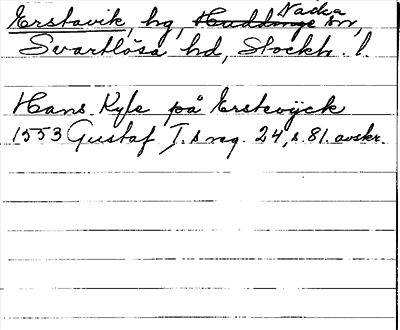 Erstavik, hg, Huddinge Nacka sn,
Svartlösa hd, Stockh. l.
Hans Kyle på Erstevijck
1553 Gustaf I.s reg. 24, s. 81. avskr.